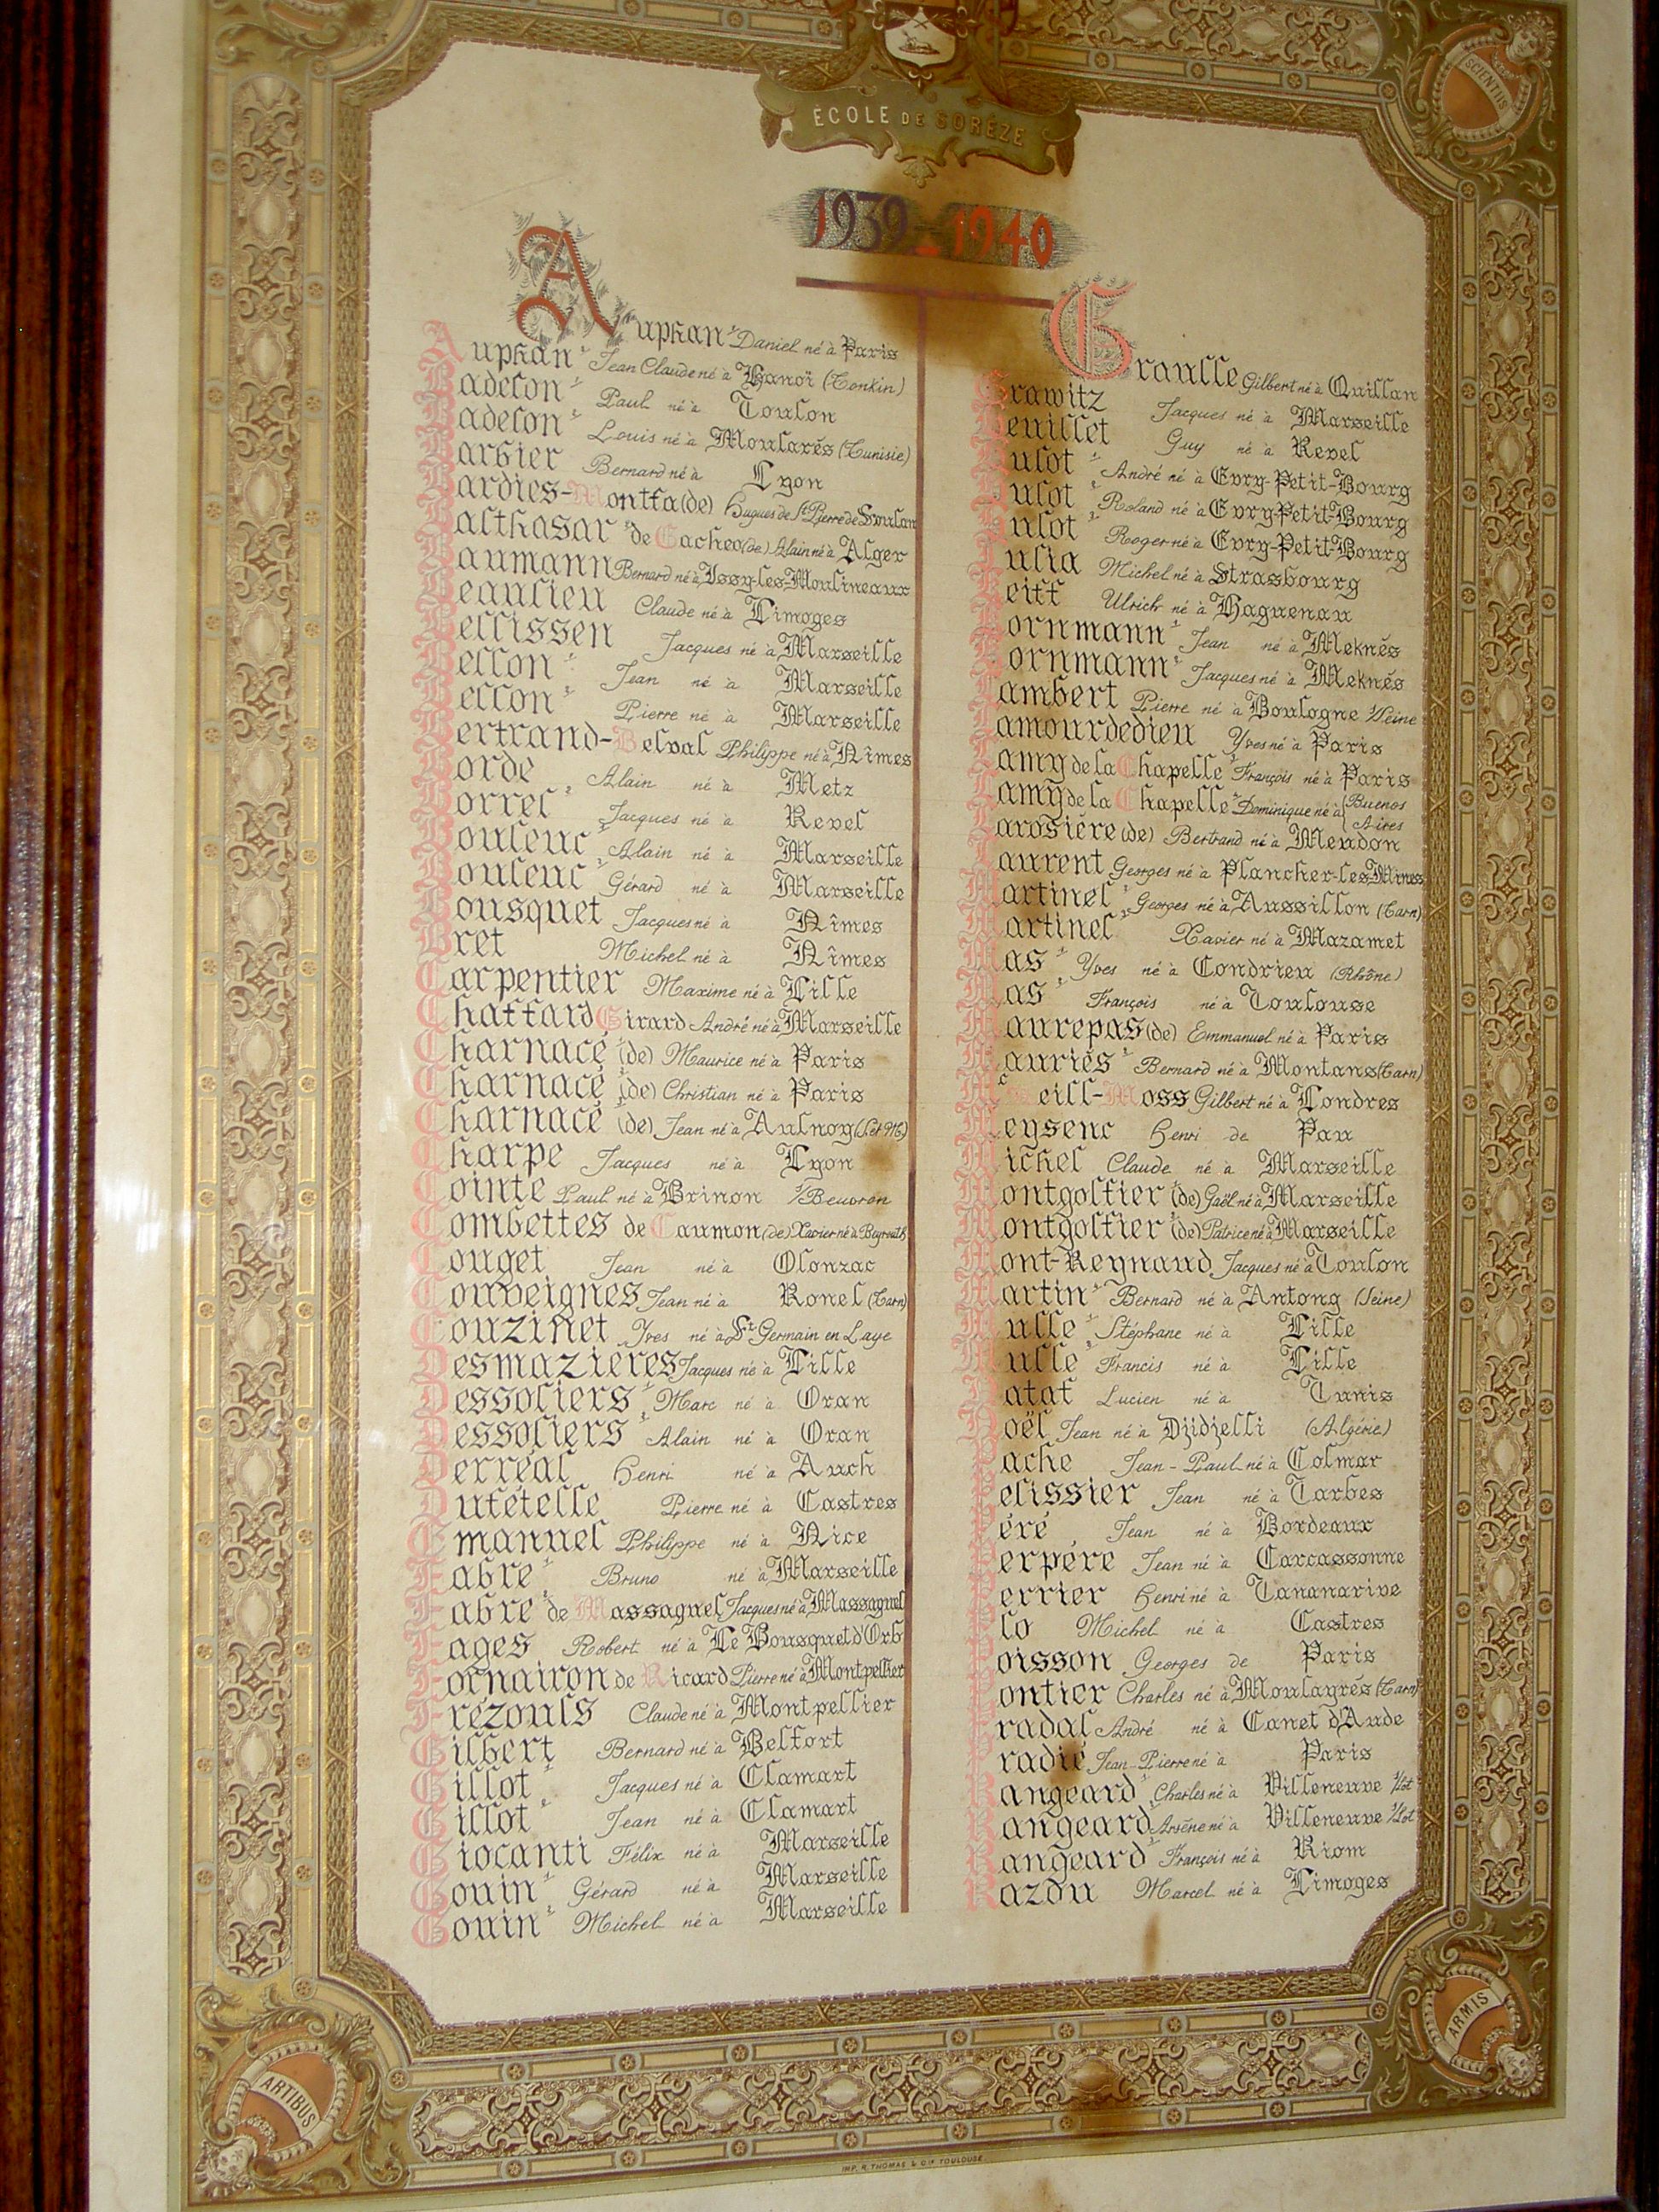 SCIENTIIS
ÉCOLE DE SORÈZE
1939-1940
Auphan Daniel né à Paris
Auphan Jean Claude né à Hanoï (Tonkin)
Badelon Paul né à Toulon
Badelon Louis né à Moularés (Tunisie)
Barbier Bernard né à Lyon
Bardies-Montfa (de) Hugues de St Pierre de
Balthasar de Gacheo (de) Alain né à Alger
Baumann Bernard né à Issy-les-Moulineaux
Beaulieu Claude né à Limoges
Bellissen Jacques né à Marseille
Bellon Jean né à Marseille
Bellon Pierre né à Marseille
Bertrand-Belval Philippe né à Nîmes
Borde Alain né à Metz
Borrel Jacques né à Revel
Bouleuc Alain né à Marseille
Bouleuc Gérard né à Marseille
Bousquet Jacques né à Nîmes
Bret Michel né à Nîmes
Carpentier Maxime né à Lille
Chaffard Girard André né à Marseille
Charnacé (de) Maurice né à Paris
Charnacé (de) Christian né à Paris
Charnacé (de) Jean né à Aulnoy (S. et M.)
Charpe Jacques né à Lyon
Cointe Paul né à Brinon s/Beuvron
Combettes de Caumon (de) Xavier né à Beyrouth
Couget Jean né à Olonzac
Couveignes Jean né à Ronel (Tarn)
Couzinet Yves né à St Germain en Laye
Desmazières Jacques né à Lille
Dessoliers Marc né à Oran
Dessoliers Alain né à Oran
Derréal Henri né à Auch
Dufételle Pierre né à Castres
Emanuel Philippe né à Nice
Fabre Bruno né à Marseille
Fabre de Massaguel Jacques né à Massaguel
Fages Robert né à Le Bousquet d'Orb
Fornairon de Ricard Pierre né à Montpellier
Frézouls Claude né à Montpellier
Gilbert Bernard né à Belfort
Gillot Jacques né à Clamart
Gillot Jean né à Clamart
Giocanti Félix né à Marseille
Gouin Gérard né à Marseille
Gouin Michel né à Marseille
Graulle Gilbert né à Quillan
Grawitz Jacques né à Marseille
Heuillet Guy né à Revel
Hulot André né à Evry-Petit-Bourg
Hulot Roland né à Evry-Petit-Bourg
Hulot Roger né à Evry-Petit-Bourg
Julia Michel né à Strasbourg
Keiff Ulrich né à Haguenau
Kornmann Jean né à Meknés
Kornmann Jacques né à Meknés
Lambert Pierre né à Boulogne s/Seine
Lamourdedieu Yves né à Paris
Lamy de la Chapelle François né à Paris
Lamy de la Chapelle Dominique né à Buenos Aires
Larosière (de) Bertrand né à Meudon
Laurent Georges né à Plancher-les-Mines
Martinel Georges né à Aussillon (Tarn)
Martinel Xavier né à Mazamet
Mas Yves né à Condrieu (Rhône)
Mas François né à Toulouse
Maurepas (de) Emmanuel né à Paris
Mauriés Bernard né à Montans (Tarn)
Mc Neill-Moss Gilbert né à Londres
Meysenc Henri de Pau
Michel Claude né à Marseille
Montgolfier (de) Gaël né à Marseille
Montgolfier (de) Patrice né à Marseille
Mont-Reynaud Jacques né à Toulon
Martin Bernard né à Antony (Seine)
Mulle Stéphane né à Lille
Mulle Francis né à Lille
Nataf Lucien né à Tunis
Noël Jean né à Djidjelli (Algérie)
Pache Jean-Paul né à Colmar
Pelissier Jean né à Tarbes
Péré Jean né à Bordeaux
Perpère Jean né à Carcassonne
Perrier Henri né à Tananarive
Plo Michel né à Castres
Poisson Georges de Paris
Pontier Charles né à Moulayrés (Tarn)
Pradal André né à Canet d'Aude
Pradié Jean-Pierre né à Paris
Rangeard Charles né à Villeneuve s/Lot
Rangeard Arsène né à Villeneuve s/Lot
Rangeard François né à Riom
Razou Marcel né à Limoges
ARTIBUS
ARMIS
IMP. R. THOMAS & Cie TOULOUSE